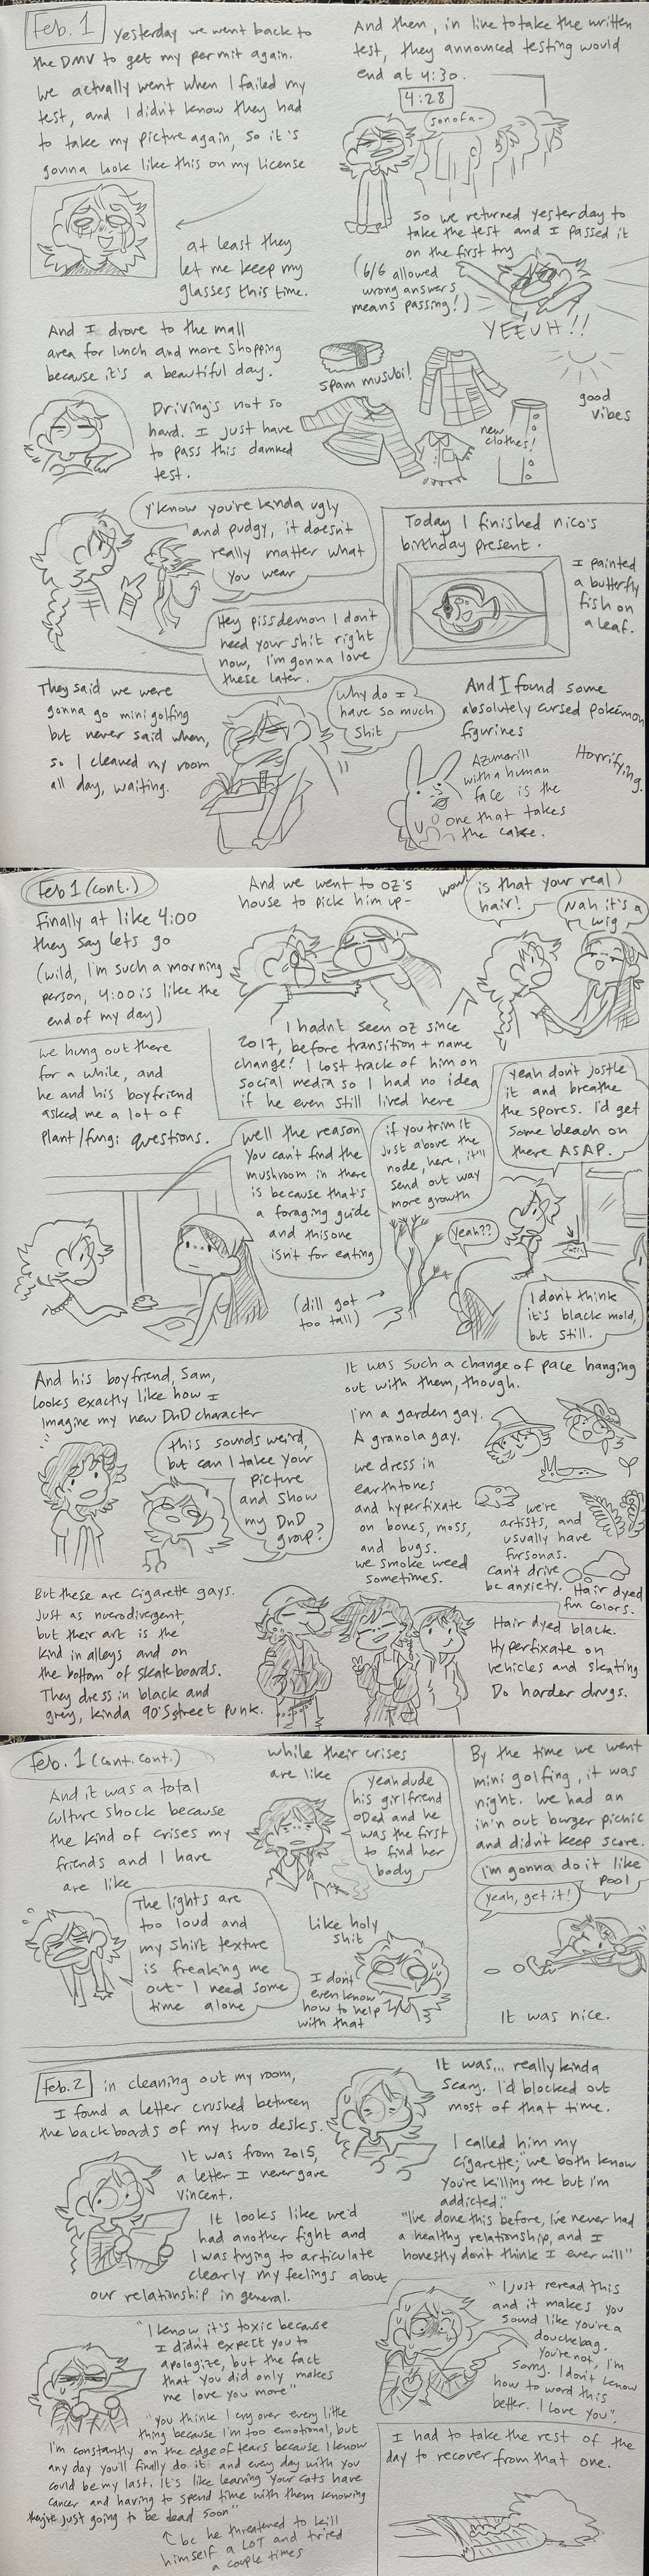 Feb. 1
Yesterday we went back to
the DMV to get my permit again.
We actually went when I failed my
test, and I didn't know they had
to take my picture again, so it's
gonna look like this on my license
at least they
let me keep my
glasses this time.
And then, in line to take the written
test, they announced testing would
end at 4:30.
4:28
sonofa-
So we returned yesterday to
take the test and I passed it
on the first try
(6/6 allowed
wrong answers
means passing!)
YEEUH!!
And I drove to the mall
area for lunch and more shopping
because it's a beautiful day.
Driving's not so
hard. I just have
to pass this damned
test.
spam musubi!
new
clothes!
good
vibes
y'know you're kinda ugly
and pudgy, it doesn't
really matter what
you wear
Hey pissdemon I don't
need your shit right
now, I'm gonna love
these later.
Today I finished nico's
birthday present.
I painted
a butterfly
fish on
a leaf.
They said we were
gonna go mini golfing
but never said when,
so I cleaned my room
all day, waiting.
Why do I
have so much
shit
And I found some
absolutely cursed pokémon
figurines
Azumarill
with a human
face is the
one that takes
the cake.
Horrifying.
Feb 1 (cont.)
Finally at like 4:00
they say lets go
(wild, I'm such a morning
person, 4:00 is like the
end of my day)
And we went to oz's
house to pick him up-
wow!
is that your real
hair!
Nah it's a
wig
I hadn't seen oz since
2017, before transition + name
change! I lost track of him on
social media so I had no idea
if he even still lived here
we hung out there
for a while, and
he and his boyfriend
asked me a lot of
plant/fungi questions.
well the reason
you can't find the
mushroom in there
is because that's
a foraging guide
and this one
isn't for eating
if you trim it
just above the
node, here, it'll
send out way
more growth
yeah??
(dill got
too tall)
yeah don't jostle
it and breathe
the spores. I'd get
some bleach on
there ASAP.
I don't think
it's black mold,
but still.
And his boyfriend, Sam,
looks exactly like how I
imagine my new DnD character
this sounds weird,
but can I take your
picture
and show
my DnD
group?
It was such a change of pace hanging
out with them, though.
I'm a garden gay.
A granola gay.
we dress in
earthtones
and hyperfixate
on bones, moss,
and bugs.
we smoke weed
sometimes.
we're
artists, and
usually have
fursonas.
can't drive
bc anxiety.
Hair dyed
fun colors.
But these are cigarette gays.
Just as nuerodivergent,
but their art is the
kind in alleys and on
the bottom of skateboards.
They dress in black and
grey, kinda 90's street punk.
Hair dyed black.
Hyperfixate on
vehicles and skating
Do harder drugs.
Feb. 1 (cont. cont.)
And it was a total
culture shock because
the kind of crises my
friends and I have
are like
The lights are
too loud and
my shirt texture
is freaking me
out- I need some
time alone
while their crises
are like
yeah dude
his girlfriend
ODed and he
was the first
to find her
body
Like holy
shit
I don't
even know
how to help
with that
By the time we went
mini golfing, it was
night. We had an
in'n out burger picnic
and didn't keep score.
I'm gonna do it like
pool
yeah, get it!
It was nice.
Feb. 2
in cleaning out my room,
I found a letter crushed between
the backboards of my two desks.
It was from 2015,
a letter I never gave
Vincent.
It looks like we'd
had another fight and
I was trying to articulate
clearly my feelings about
our relationship in general.
It was... really kinda
scary. I'd blocked out
most of that time.
I called him my
cigarette; "we both know
you're killing me but I'm
addicted."
"I've done this before, I've never had
a healthy relationship, and I
honestly don't think I ever will"
"I know it's toxic because
I didn't expect you to
apologize, but the fact
that you did only makes
me love you more"
"You think I cry over every little
thing because I'm too emotional, but
I'm constantly on the edge of tears because I know
any day you'll finally do it and every day with you
could be my last. It's like learning your cats have
cancer and having to spend time with them knowing
they're just going to be dead soon"
↑ bc he threatened to kill
himself a LOT and tried
a couple times
"I just reread this
and it makes you
sound like you're a
douchebag.
You're not, I'm
sorry. I don't know
how to word this
better. I love you".
I had to take the rest of the
day to recover from that one.